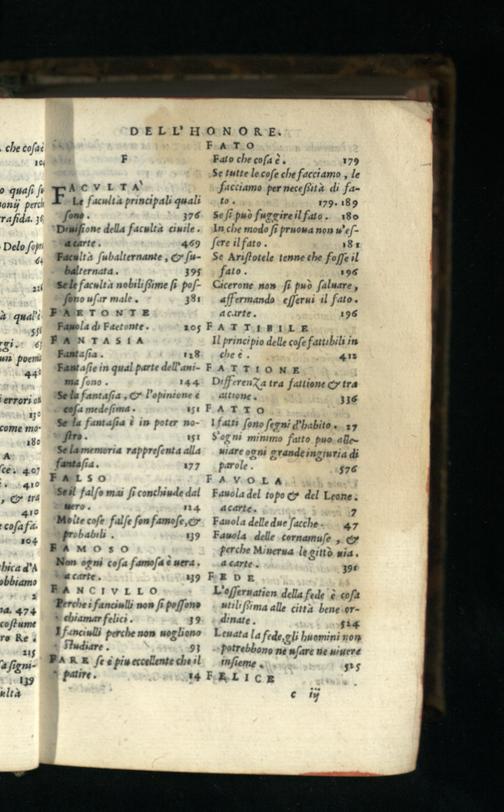 . che cosa è
o quasi so
onij perch
rrafida. 36
o Delo sopr
à qual'è
rgi. 6
un poema
i errori o
come mo-
180
A
sce. 407
i. 410
, & tra
410
e cosa fa.
104
thica d'A
obbiamo
2
na. 474
costume
ro Re.
215
sa signi-
139
cultà
DELL'HONORE.
F
FACVLTA'
Le facultà principali quali
sono. 376
Diuisione della facultà ciuile.
a carte. 469
Facultà subalternante, & su-
balternata. 395
Se le facultà nobilissime si pos-
sono usar male. 381
FAETONTE
Fauola di Faetonte. 205
FANTASIA
Fantasia. 128
Fantasie in qual parte dell'ani-
ma sono. 144
Se la fantasia, & l'opinione è
cosa medesima. 151
Se la fantasia è in poter no-
stro. 151
Se la memoria rappresenta alla
fantasia. 177
FALSO
Se il falso mai si conchiude dal
uero. 124
Molte cose false son famose, &
probabili. 139
FAMOSO
Non ogni cosa famosa è uera.
a carte. 139
FANCIVLLO
Perche i fanciulli non si possono
chiamar felici. 39
I fanciulli perche non uogliono
studiare. 93
FARE se è piu eccellente che il
patire. 14
FATO
Fato che cosa è. 179
Se tutte le cose che facciamo, le
facciamo per necessità di fa-
to. 179. 189
Se si può fuggire il fato. 180
In che modo si pruoua non u'es-
sere il fato. 181
Se Aristotele tenne che fosse il
fato. 196
Cicerone non si può saluare,
affermando esserui il fato.
a carte. 196
FATTIBILE
Il principio delle cose fattibili in
che è. 412
FATTIONE
Differenza tra fattione & tra
attione. 336
FATTO
I fatti sono segni d'habito. 27
S'ogni minimo fatto puo alle-
uiare ogni grande ingiuria di
parole. 576
FAVOLA
Fauola del topo & del Leone.
a carte. 7
Fauola delle due sacche. 47
Fauola delle cornamuse, &
perche Minerua le gittò uia.
a carte. 391
FEDE
L'osseruation della fede è cosa
utilissima alle città bene or-
dinate. 524
Leuata la fede, gli huomini non
potrebbono ne usare ne uiuere
insieme. 525
FELICE
c iij